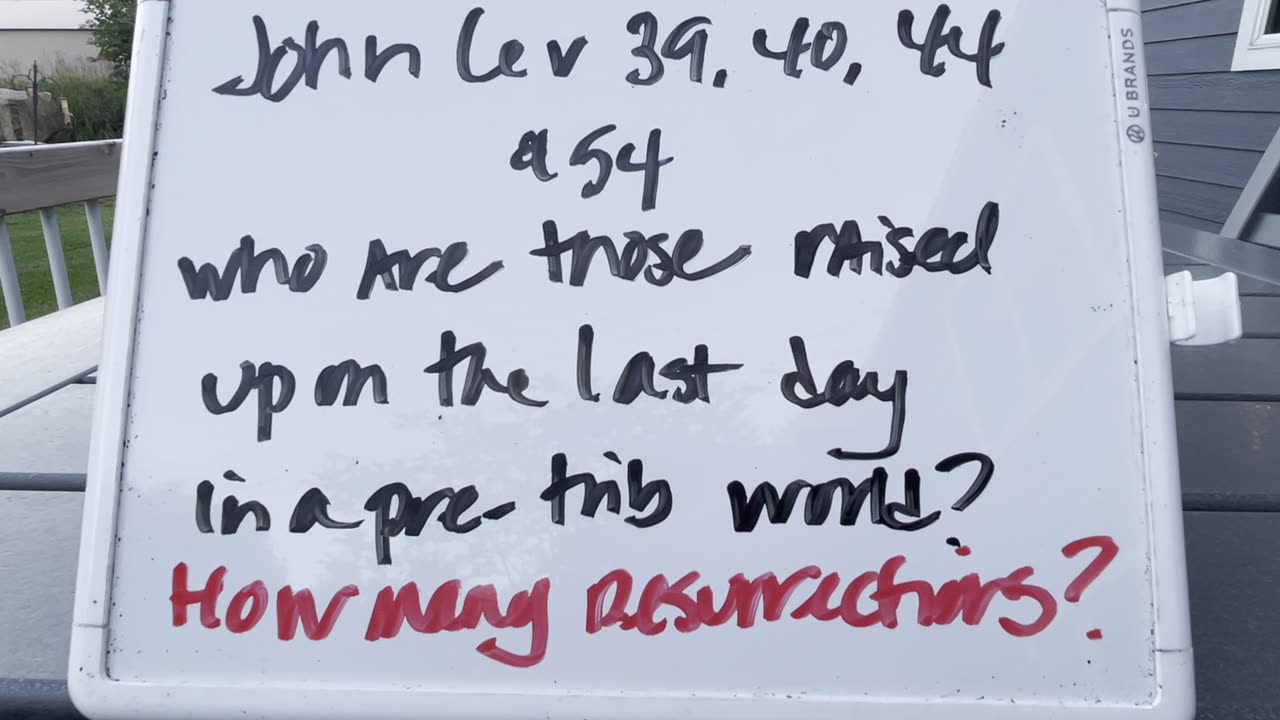 John 6ev 39, 40, 44
& 54
who Are those raised
up on the last day
in a pre-trib world?
How many Resurrections?
U BRANDS